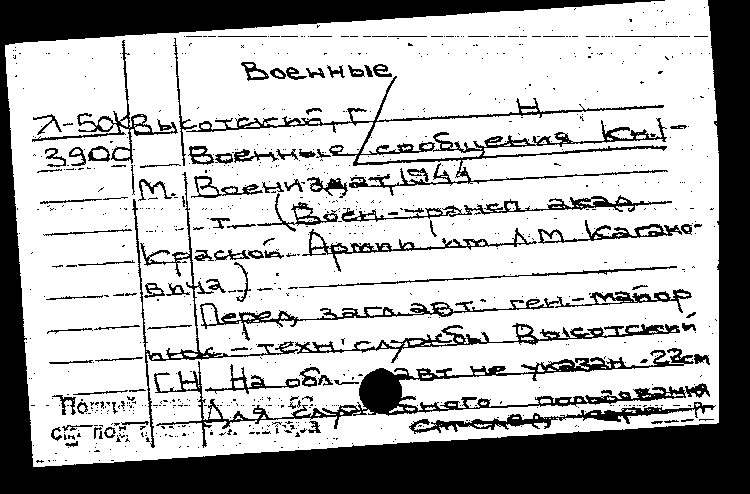 Военные
Л-50К Высотский, Г Н
3900 Военные сообщения Кн.I-
М. Воениздат, 1944
т. (Воен.-трансп. акад.
Красной Армии им. Л.М. Кагано-
вича)
Перед загл. авт.: ген.-майор
инж.-техн. службы Высотский
Г.Н. На обл. авт. не указан. 22см
Для служебного пользования
Полный
см под автора
см.след. карт